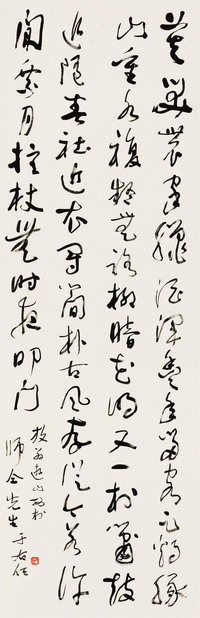 莫笑農家臘酒渾豐年留客足雞豚
山重水複疑無路柳暗花明又一村簫鼓
追隨春社近衣冠簡樸古風存從今若許
閒乘月拄杖無時夜叩門
放翁遊山西村
先生于右任